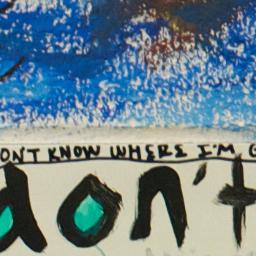 ON'T KNOW WHERE I'M G
don't